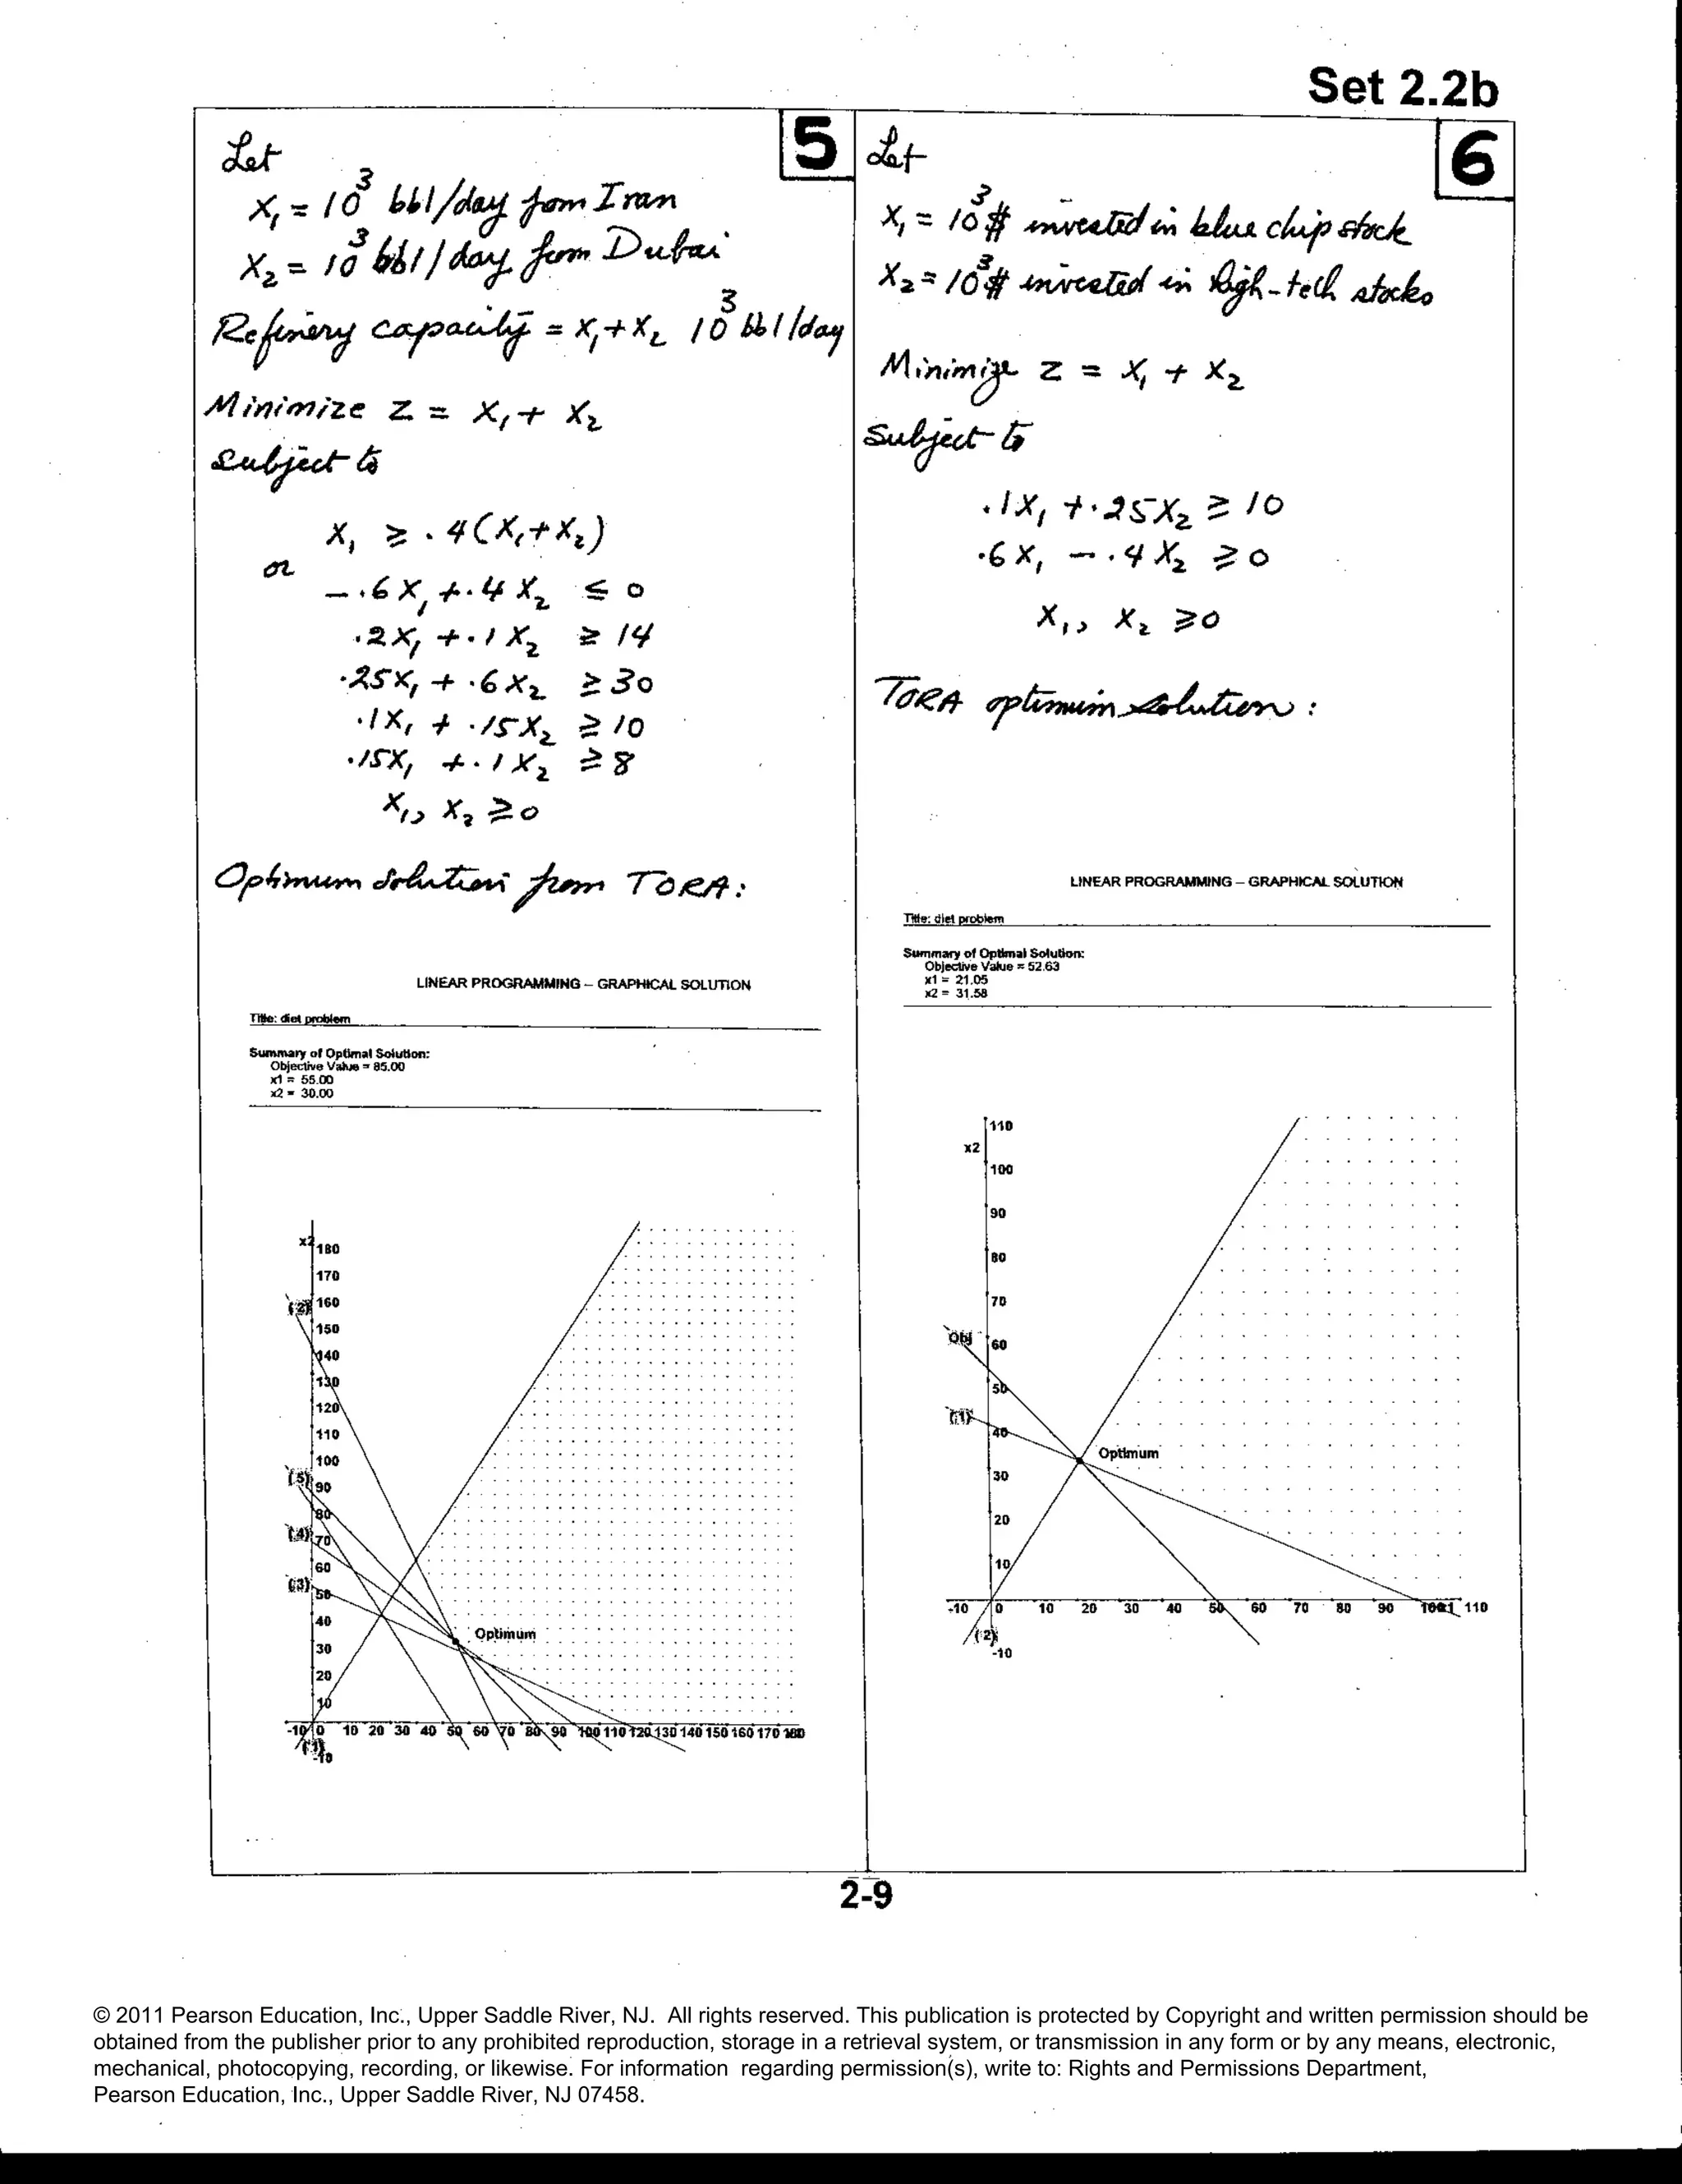 Set 2.2b
5
Let
x₁ = 10³ bbl/day from Iran
x₂ = 10³ bbl/day from Dubai
Refinery capacity = x₁+x₂ 10³ bbl/day
Minimize z = x₁ + x₂
subject to
x₁ ≥ .4(x₁+x₂)
or
-.6x₁ +.4x₂ ≤ 0
.2x₁ +.1x₂ ≥ 14
.25x₁ + .6x₂ ≥ 30
.1x₁ + .15x₂ ≥ 10
.15x₁ +.1x₂ ≥ 8
x₁, x₂ ≥ 0
Optimum solution from TORA:
LINEAR PROGRAMMING – GRAPHICAL SOLUTION
Title: diet problem
Summary of Optimal Solution:
Objective Value = 85.00
x1 = 55.00
x2 = 30.00
x2
180
170
(2) 160
150
140
130
120
110
100
(5) 90
80
(4) 70
60
(3) 50
40
Optimum
30
20
10
-10 0 10 20 30 40 50 60 70 80 90 100 110 120 130 140 150 160 170 180
(1)
-10
6
Let
x₁ = 10³$ invested in blue chip stock
x₂ = 10³$ invested in high-tech stocks
Minimize z = x₁ + x₂
Subject to
.1x₁ +.25x₂ ≥ 10
.6x₁ - .4x₂ ≥ 0
x₁, x₂ ≥ 0
TORA optimum solution:
LINEAR PROGRAMMING – GRAPHICAL SOLUTION
Title: diet problem
Summary of Optimal Solution:
Objective Value = 52.63
x1 = 21.05
x2 = 31.58
110
x2
100
90
80
70
Obj 60
50
(1)
40
Optimum
30
20
10
-10 0 10 20 30 40 50 60 70 80 90 100 x1 110
(2)
-10
2-9
© 2011 Pearson Education, Inc., Upper Saddle River, NJ. All rights reserved. This publication is protected by Copyright and written permission should be
obtained from the publisher prior to any prohibited reproduction, storage in a retrieval system, or transmission in any form or by any means, electronic,
mechanical, photocopying, recording, or likewise. For information regarding permission(s), write to: Rights and Permissions Department,
Pearson Education, Inc., Upper Saddle River, NJ 07458.